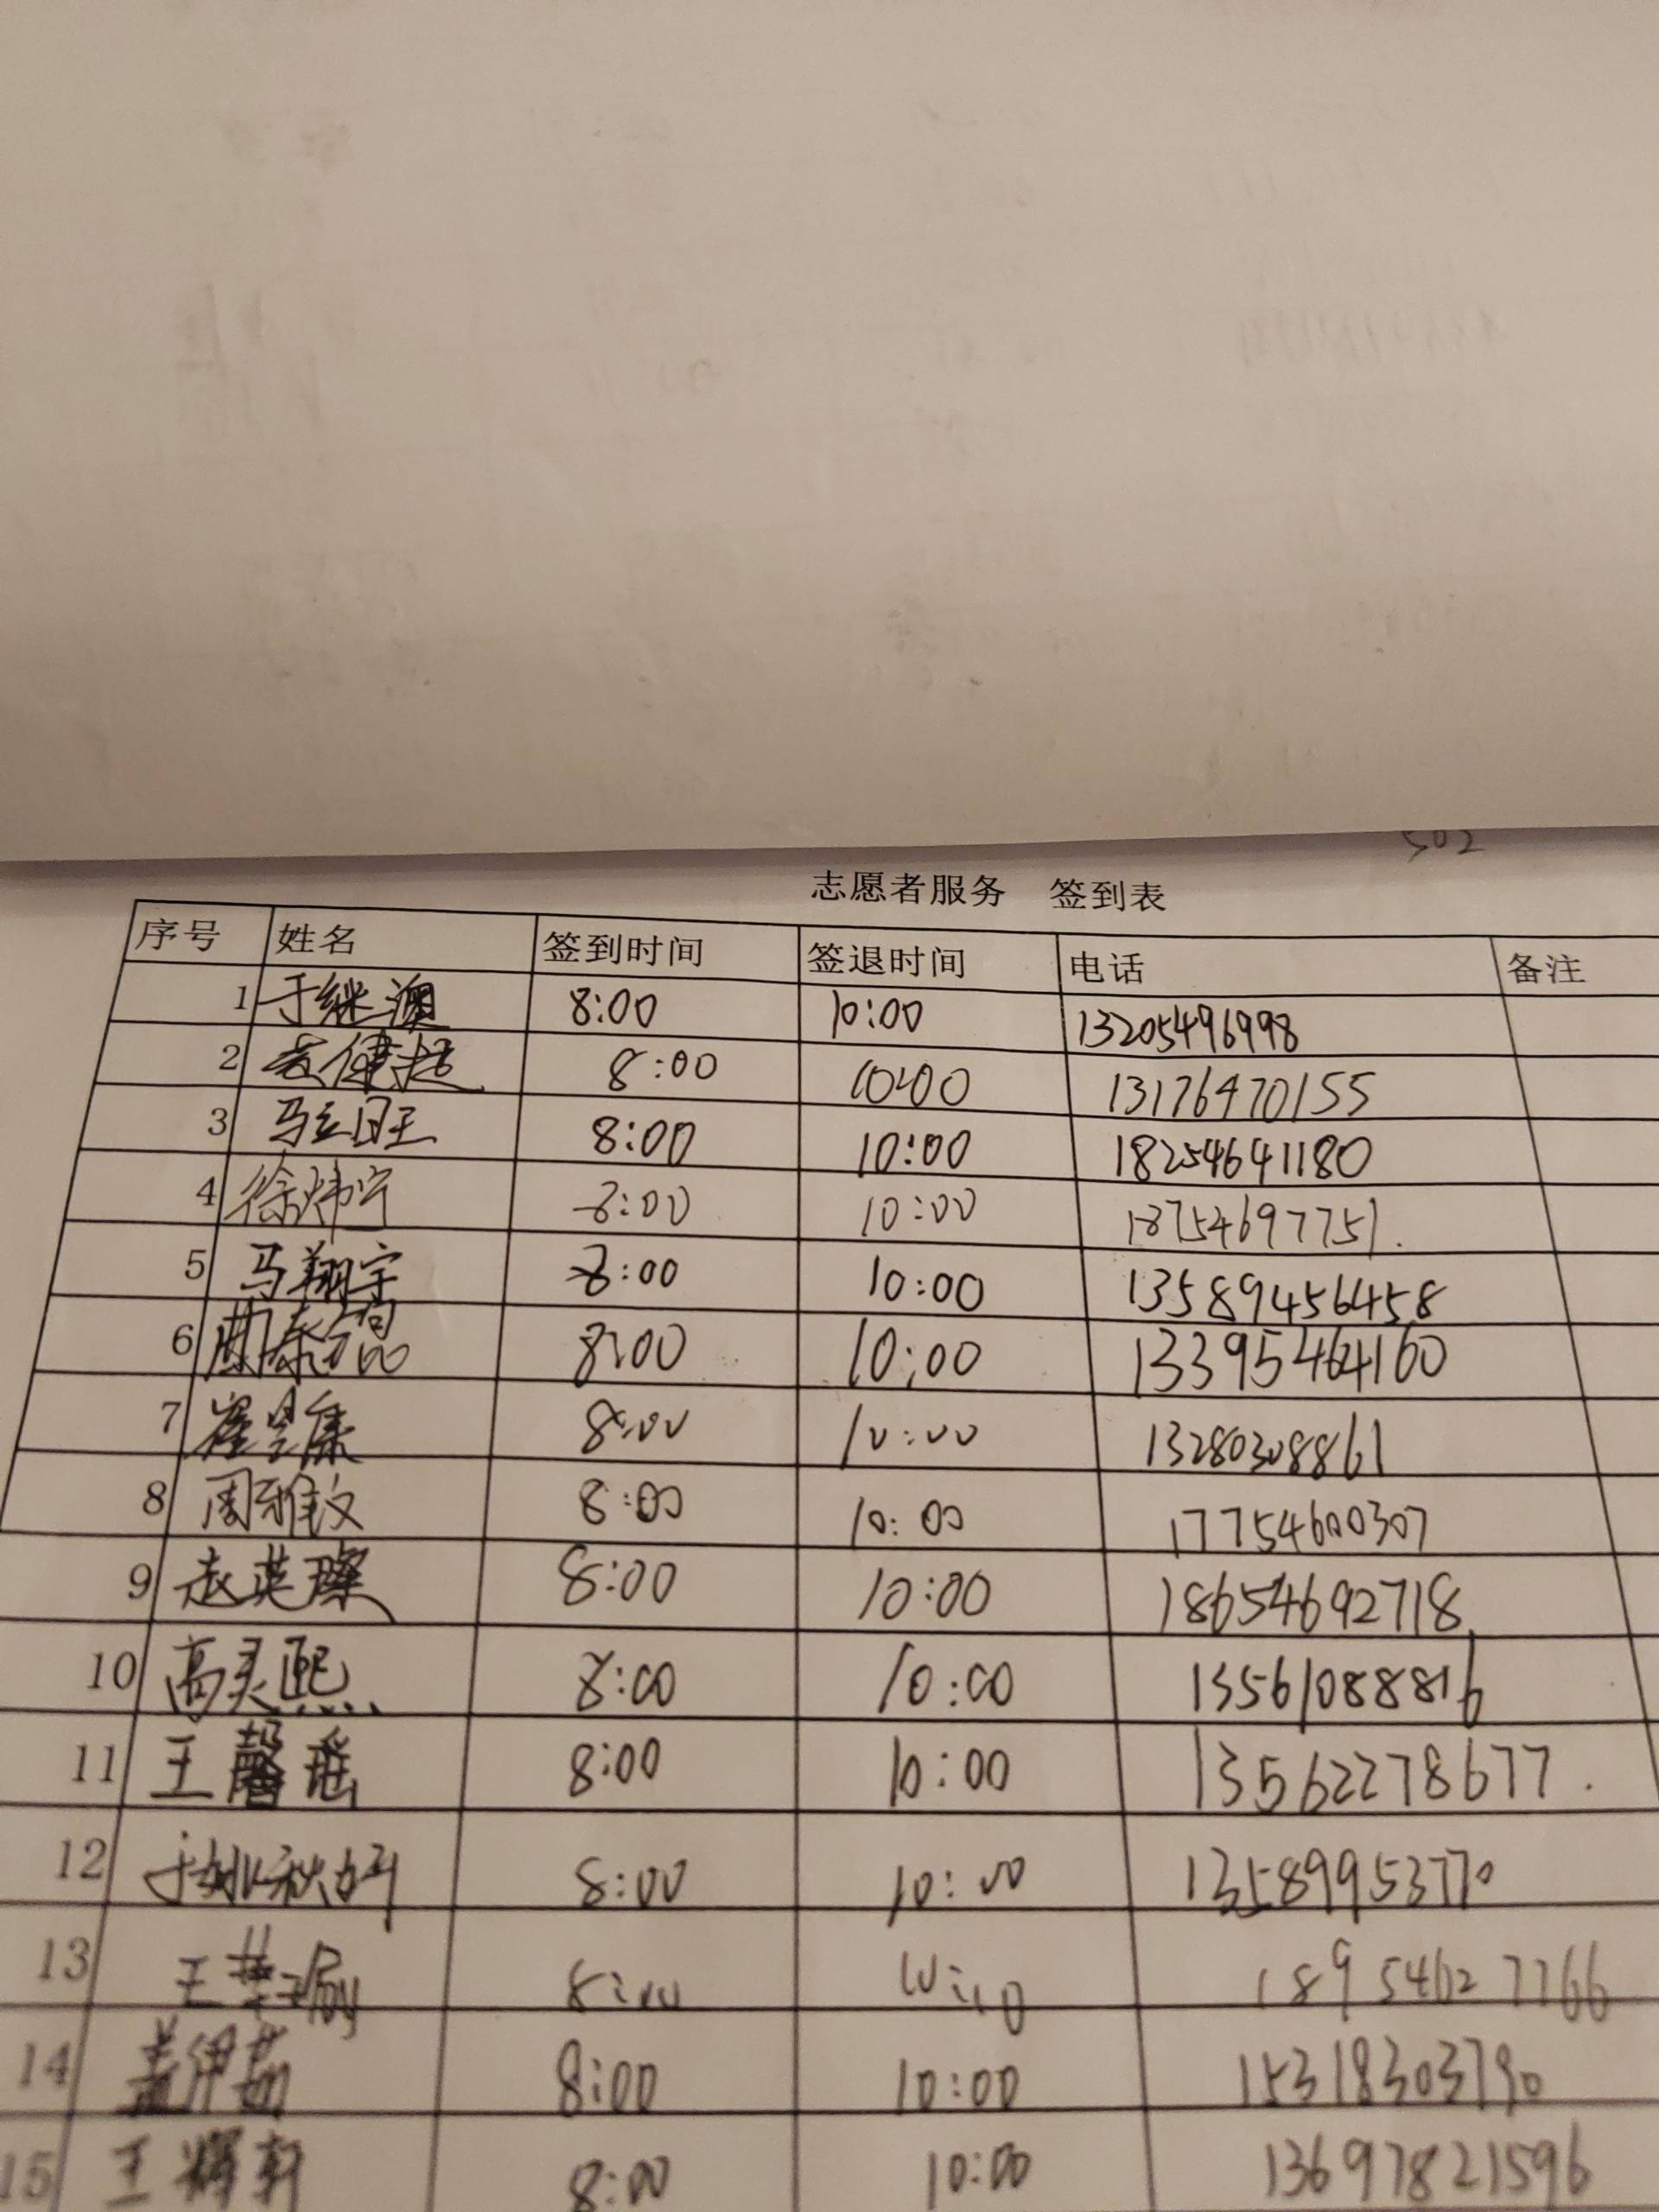 502
志愿者服务 签到表
序号 姓名 签到时间 签退时间 电话 备注
1 于继澳 8:00 10:00 13205496998
2 健 8:00 10:00 13176470155
3 马 旺 8:00 10:00 18254641180
4 徐炜宁 8:00 10:00 18754697751.
5 马翔宇 8:00 10:00 135894456458
6 8:00 10:00
7 崔昱康 8:00 10:00 13280308861
8 周雅文 8:00 10:00 17754600307
9 赵英璨 8:00 10:00 18654692718
10 高灵熙 8:00 10:00 13561088816
11 王馨瑶 8:00 10:00 13562278677.
12 于姚秋妤 8:00 10:00 13589953770
13 王 瑜 8:00 10:10 18954627766
14 盖伊茹 8:00 10:00 15318303790
15 王辉轩 8:00 10:00 13697821596